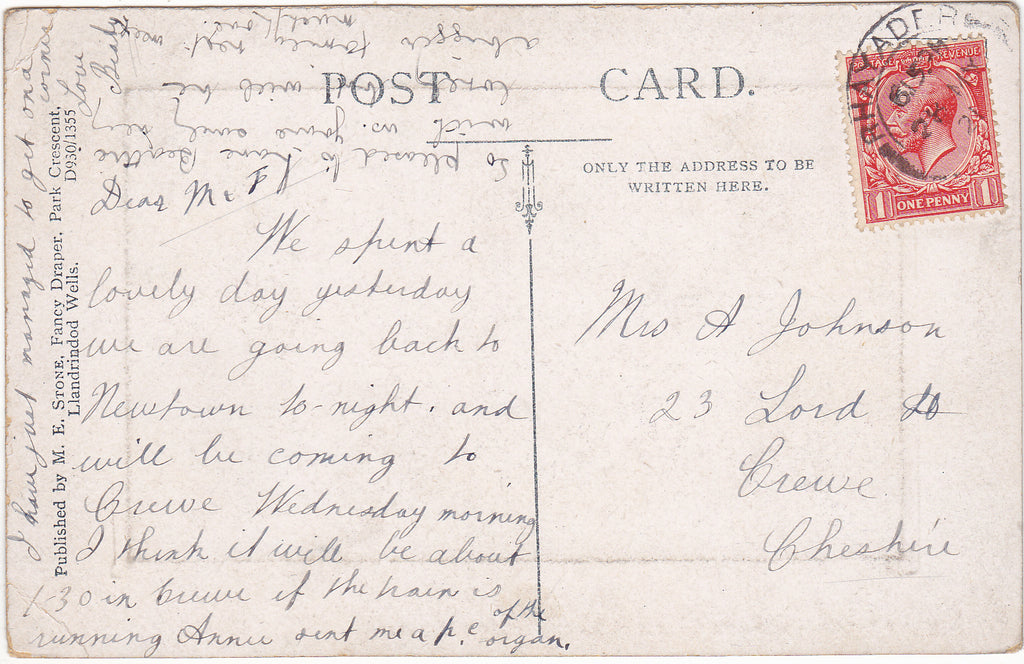 POST CARD.
ONLY THE ADDRESS TO BE
WRITTEN HERE.
RHAYADER
POSTAGE REVENUE
1 ONE PENNY 1
Mrs A Johnson
23 Lord St
Crewe
Cheshire
Dear M & F
We spent a
lovely day yesterday
we are going back to
Newtown to-night. and
will be coming to
Crewe Wednesday morning
I think it will be about
1-30 in Crewe if the train is
running Annie sent me a p.c of the
organ.
So pleased to have
with us.
will be
a bigger family next week
much love
I have just managed to get on a corner
Love
Published by M. E. STONE, Fancy Draper, Park Crescent,
Llandrindod Wells. D930/1355